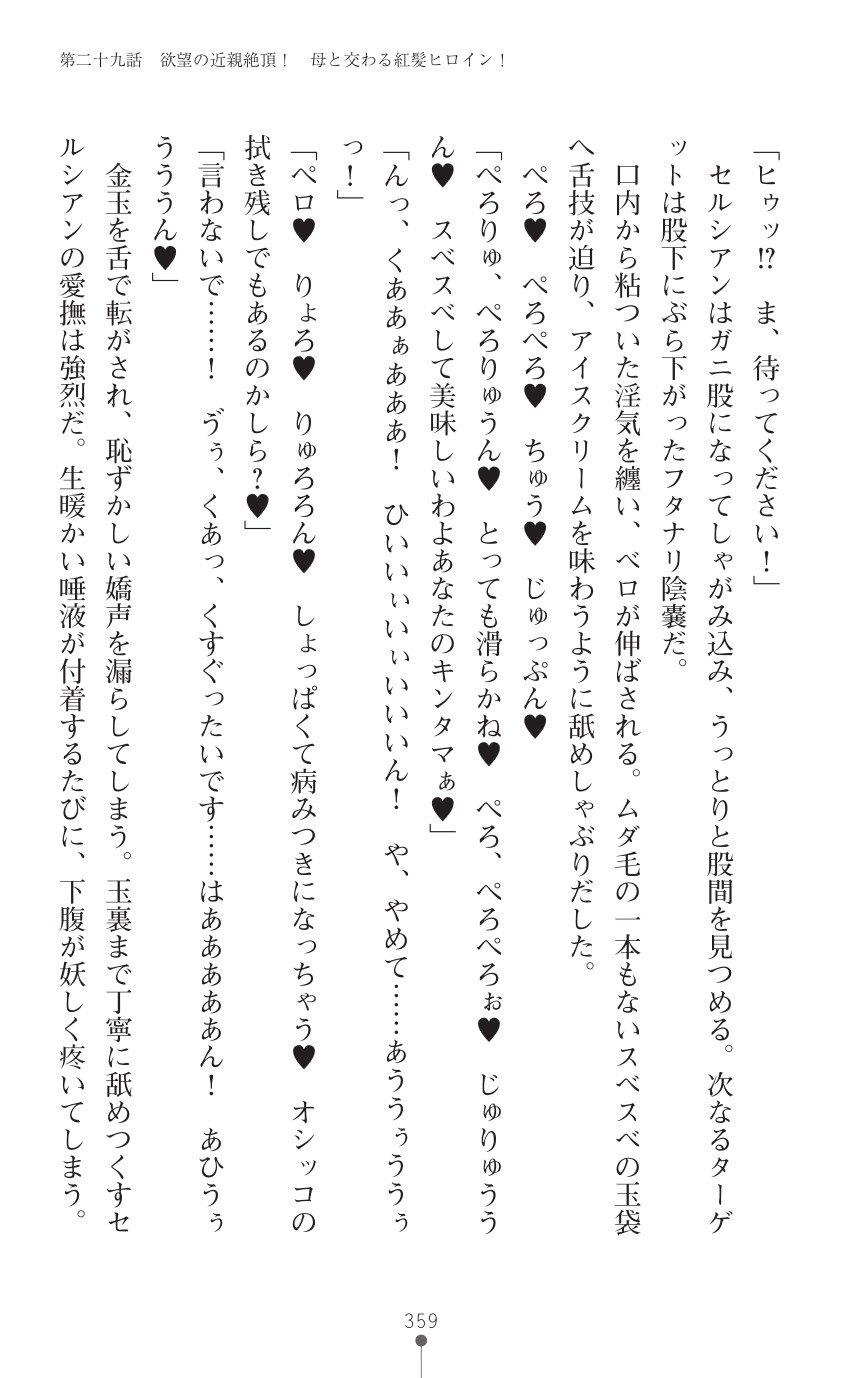 第二十九話　欲望の近親絶頂！　母と交わる紅髪ヒロイン！
「ヒゥッ!?　ま、待ってください！」
　セルシアンはガニ股になってしゃがみ込み、うっとりと股間を見つめる。次なるターゲ
ットは股下にぶら下がったフタナリ陰嚢だ。
　口内から粘ついた淫気を纏い、ベロが伸ばされる。ムダ毛の一本もないスベスベの玉袋
へ舌技が迫り、アイスクリームを味わうように舐めしゃぶりだした。
　ぺろ♥　ぺろぺろ♥　ちゅう♥　じゅっぷん♥
「ぺろりゅ、ぺろりゅうん♥　とっても滑らかね♥　ぺろ、ぺろぺろぉ♥　じゅりゅうう
ん♥　スベスベして美味しいわよあなたのキンタマぁ♥」
「んっ、くああぁあああ！　ひいいぃいぃいいいん！　や、やめて……あううぅううぅ
っ！」
「ペロ♥　りょろ♥　りゅろろん♥　しょっぱくて病みつきになっちゃう♥　オシッコの
拭き残しでもあるのかしら？♥」
「言わないで……！　ゔぅ、くあっ、くすぐったいです……はああああん！　あひうぅ
うううん♥」
　金玉を舌で転がされ、恥ずかしい嬌声を漏らしてしまう。玉裏まで丁寧に舐めつくすセ
ルシアンの愛撫は強烈だ。生暖かい唾液が付着するたびに、下腹が妖しく疼いてしまう。
359